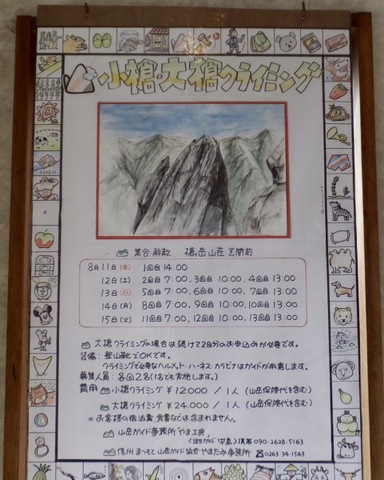 小槍・大槍クライミング
集合・解散 槍岳山荘 玄関前
8月11日(金) 1回目 14:00
12日(土) 2回目 7:00, 3回目 10:00, 4回目 13:00
13日(日) 5回目 7:00, 6回目 10:00, 7回目 13:00
14日(月) 8回目 7:00, 9回目 10:00, 10回目 13:00
15日(火) 11回目 7:00, 12回目 10:00, 13回目 13:00
大槍クライミングの場合は続けて2回分のお申込みが必要です。
装備: 登山靴でOKです。
クライミングで必要なヘルメット・ハーネス・カラビナはガイドが用意します。
募集人員: 各回2名(1名でも実施します。)
費用 小槍クライミング ¥12000 / 1人 (山岳保険代を含む)
大槍クライミング ¥24,000 / 1人 (山岳保険代を含む)
* お客様の宿泊費・食費などは含まれません。
山岳ガイド事務所 やま工房,
携帯 090-2628-5163
信州まつもと山岳ガイド協会 やまたみ事務所 ☎0263-34-1543